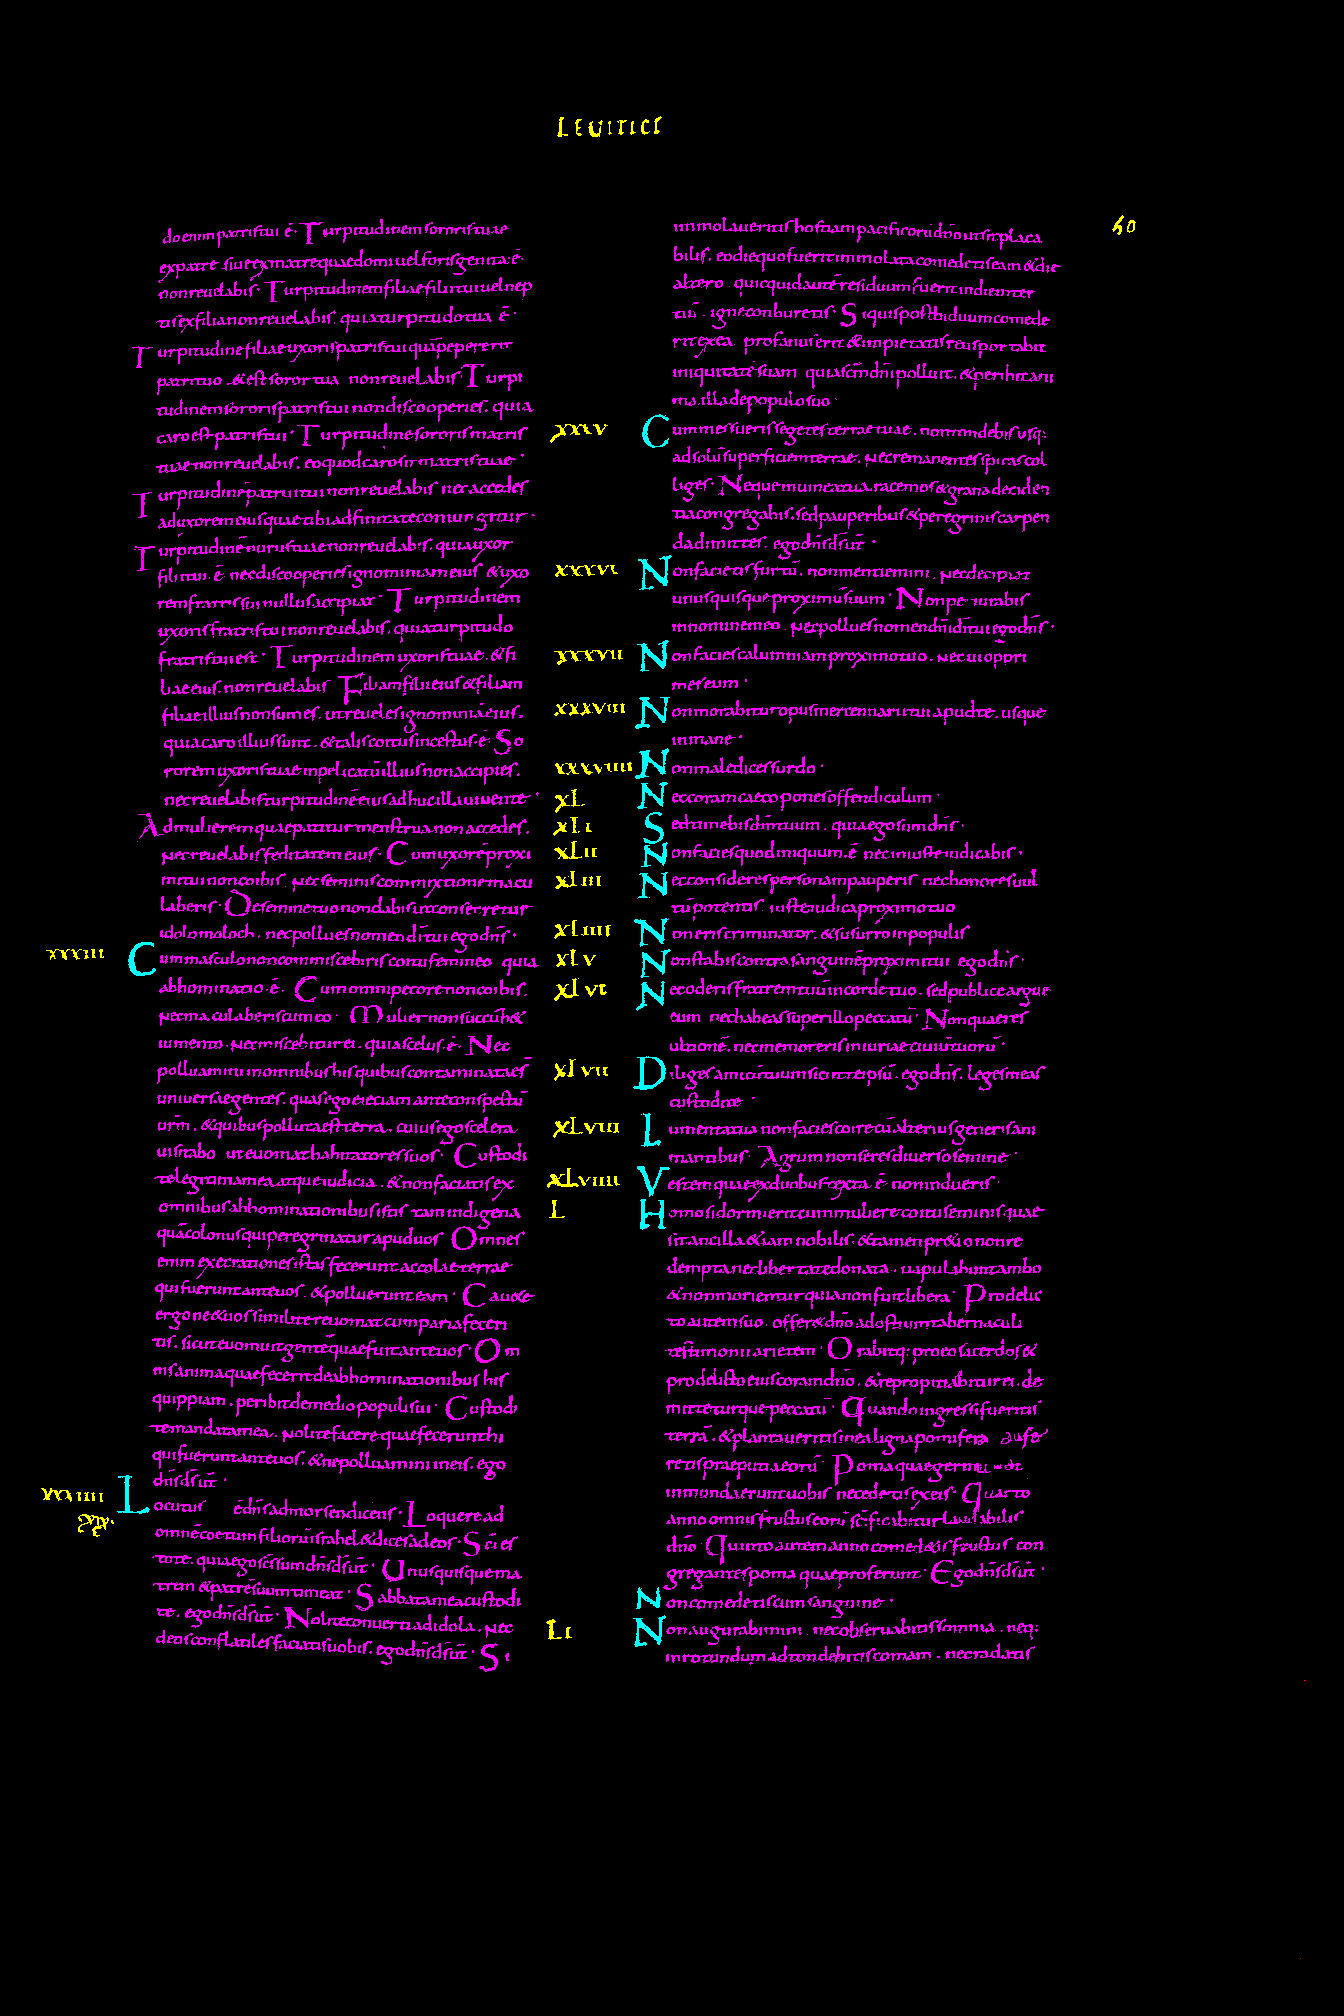 LEVITICI
40
do enim patris tui ē. Turpitudinem sororis tuae
ex patre sive ex matre quae domi vel foris genita ē
non revelabis. Turpitudinem filiae filii tui vel nep
tis ex filia non revelabis. quia turpitudo tua ē.
Turpitudinē filiae uxoris patris tui quā peperit
patri tuo. & est soror tua non revelabis. Turpi
tudinem sororis patris tui non discooperies. quia
caro est patris tui. Turpitudinē sororis matris
tuae non revelabis. eo quod caro sit matris tuae.
Turpitudinē patrui tui non revelabis nec accedes
ad uxorem eius quae tibi adfinitate coniungitur.
Turpitudinē nurus tuae non revelabis. quia uxor
filii tui ē. nec discooperies ignominiam eius & uxo
rem fratris sui nullus accipiat. Turpitudinem
uxoris fratris tui non revelabis. quia turpitudo
fratris tui est. Turpitudinem uxoris tuae. & fi
liae eius. non revelabis Filiam filii eius & filiam
filiae illius non sumes. ut reveles ignominiā eius.
quia caro illius sunt. & talis coitus incestus. ē. So
rorem uxoris tuae in pelicatū illius non accipies.
nec revelabis turpitudinē eius adhuc illa vivente.
Ad mulierem quae patitur menstrua non accedes.
nec revelabis feditatem eius. Cum uxorē proxi
mi tui non coibis. nec seminis commixtione macu
laberis. De semine tuo non dabis ut conserretur
idolo moloch. nec pollues nomen dī tui ego dn̄s.
XXXIII Cum masculo non commiscebiris coitu femineo quia
abhominatio. ē. Cum omni pecore non coibis.
nec maculaberis cum eo. Mulier non succūb&
iumento. nec miscebitur ei. quia scelus. ē. Nec
polluamini in omnibus his quibus contaminatae s̄
universae gentes. quas ego eieciam ante conspectū
urm̄. & quibus polluta est terra. cuius ego scelera
visitabo ut evomat habitatores suos. Custodi
te legitima mea. atque iudicia. & non faciatis ex
omnibus abhominationibus istis tam indigena
quā colonus qui peregrinatur apud vos Omnes
enim execrationes istas fecerunt accolae terrae
qui fuerunt ante vos. & polluerunt eam. Cavete
ergo ne & vos similiter evomat cum paria feceri
tis. sicut evomuit gentē quae fuit ante vos. Om
nis anima quae fecerit de abhominationibus his
quippiam. peribit de medio populi sui. Custodi
te mandata mea. nolite facere quae fecerunt hi
qui fuerunt ante vos. & ne polluamini in eis. ego
dn̄s d̄s ur̄.
XXXIIII Locutus ē dn̄s ad moysen dicens. Loquere ad
omnē coetum filiorū israhel & dices ad eos. Sc̄i es
tote. quia ego sc̄s sum dn̄s d̄s ur̄. Unusquisque ma
trem & patrē suum timeat. Sabbata mea custodi
te. ego dn̄s d̄s ur̄. Nolite converti ad idola. nec
deos conflatiles faciatis vobis. ego dn̄s d̄s ur̄. Si
immolaveritis hostiam pacificorū dn̄o ut sit placa
bilis. eo die quo fuerit immolata comedetis eam & die
altero. quicquid autē residuum fuerit in diem ter
tiū. igne conburetis. Si quis post biduum comede
rit ex ea. profanus erit & impietatis reus portabit
iniquitatē suam quia sc̄m dn̄i polluit. & peribit ani
ma illa de populo suo.
XXXV Cum messueris segetes terrae tuae. non tondebis usq:
ad solū superficiem terrae. nec remanentes spicas col
liges. Neque in vinea tua racemos & grana deciden
tia congregabis. sed pauperibus & peregrinis carpen
da dimittes. ego dn̄s d̄s ur̄.
XXXVI Non facietis furtū. non mentiemini. nec decipiat
unusquisque proximū suum. Non peiurabis
in nomine meo nec pollues nomen dn̄i dī tui ego dn̄s.
XXXVII Non facies calumniam proximo tuo. nec vi oppri
mes eum.
XXXVIII Non morabitur opus mercennarii tui apud te. usque
in mane.
XXXVIIII Non maledices surdo.
XL Nec coram caeco pones offendiculum.
XLI Sed timebis dm̄ tuum. quia ego sum dn̄s.
XLII Non facies quod iniquum. ē nec iniuste iudicabis.
XLIII Nec consideres personam pauperis nec honores vul
tū potentis. iuste iudica proximo tuo
XLIIII Non eris criminator. & susurro in populis
XLV Non stabis contra sanguinē proximi tui ego dn̄s.
XLVI Ne oderis fratrem tuū in corde tuo. sed publice argue
eum nec habeas super illo peccatū. Non quaeres
ultionē. nec memor eris iniuriae civiū tuorū.
XLVII Diliges amicū tuum sicut te ipsū. ego dn̄s. leges meas
custodite.
XLVIII Iumenta tua non facies coire cū alterius generis ani
mantibus. Agrum non seres diverso semine.
XLVIIII Vestem quae ex duobus texta ē non indueris.
L Homo si dormierit cum muliere coitu seminis quae
sit ancilla & iam nobilis. & tamen pr&io non re
dempta nec libertate donata. vapulabunt ambo
& non morientur quia non fuit libera. Pro delic
to autem suo. offer& dn̄o ad ostium tabernaculi
testimonii arietem. Orabitq: pro eo sacerdos &
pro delicto eius coram dn̄o. & repropitiabitur ei. de
mitteturque peccatū. Quando ingressi fueritis
terrā. & plantaveritis in ea ligna pomifera aufer
retis praeputia eorū. Poma quae germinant
inmunda erunt vobis nec edetis ex eis. Quarto
anno omnis fructus eorū sc̄ificabitur laudabilis
dn̄o Quinto autem anno comed&is fructus con
gregantes poma quae proferunt. Ego dn̄s d̄s ur̄.
Non comedetis cum sanguine.
LI Non auguramini nec observabitis somnia. neq:
in rotundum adtondebitis comam. nec radatis